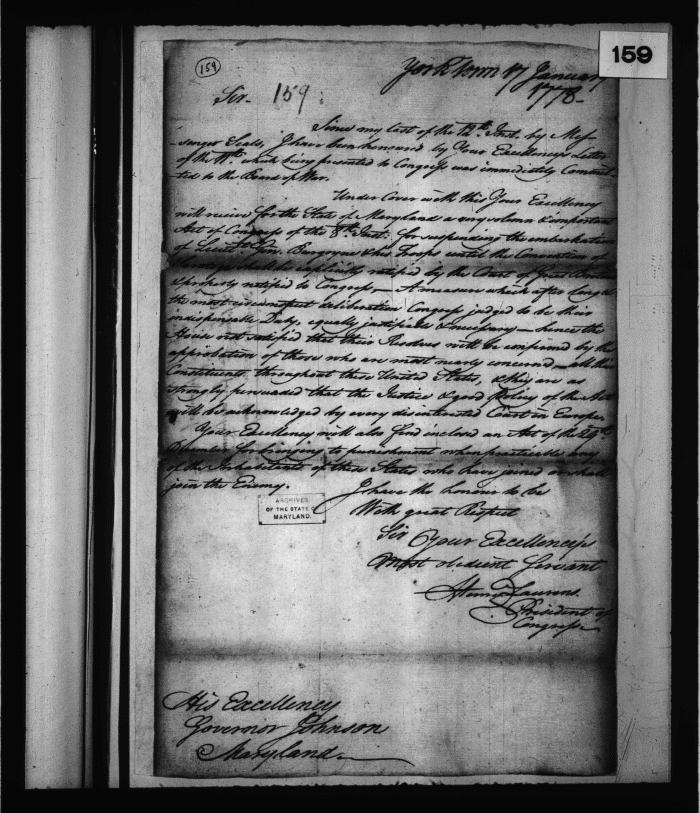 159
159
York Town 17 January
1778-
Sir- 159
Since my last of the 12th. Inst. by Mes-
-senger Seals, I have been honoured by Your Excellencys Letter
of the 11th. which being presented to Congress was immediately Commit-
-ted to the Board of War.
Under Cover with this Your Excellency
will receive for the State of Maryland a very solemn & important
Act of Congress of the 8th. Inst. for suspending the embarkation
of Lieutt. Gen. Burgoyne & his Troops until the Convention of
shall be explicitly ratified by the Court of Great Britain
& properly notified to Congress,— A measure which after long &
the most circumspect deliberation Congress judged to be their
indispensable Duty, equally justifiable & necessary— hence the
House not satisfied that their Resolves will be confirmed by the
approbation of those who are most nearly concerned,— all their
Constituents throughout these United States, & they are as
strongly persuaded that the Justice & good Policy of the Act
will be acknowledged by every disinterested Court in Europe.
Your Excellency will also find inclosed an Act of the 29th.
December for bringing to punishment when practicable any
of the Inhabitants of these States who have joined or shall
join the Enemy.
I have the honour to be
With great Respect
Sir Your Excellency's
Most obedient Servant
Henry Laurens.
President of
Congress
ARCHIVES
OF THE STATE OF
MARYLAND.
His Excellency
Governor Johnson
Maryland